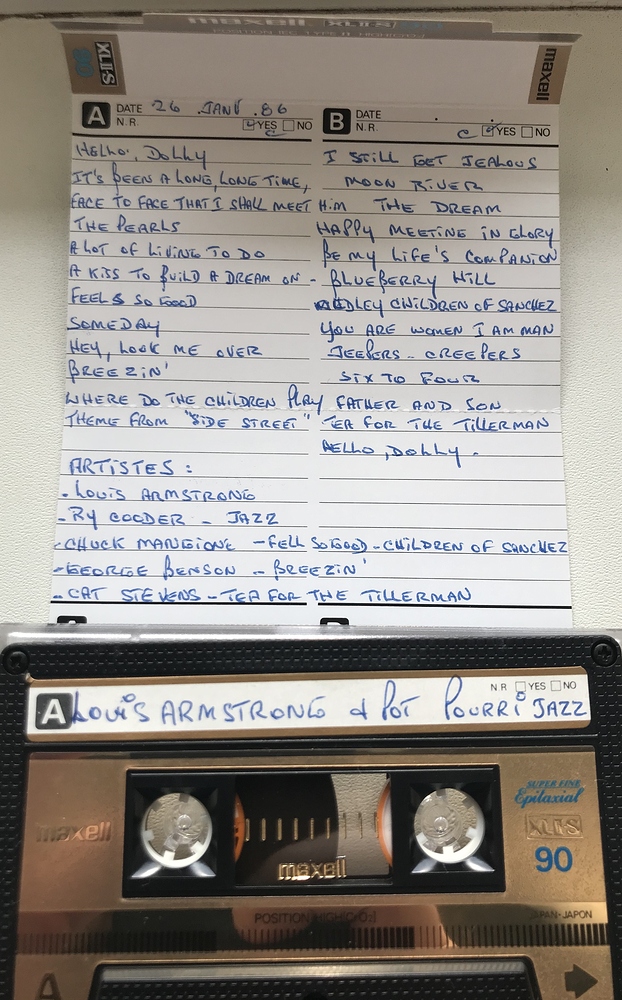 maxell XLII-S/
POSITION IEC TYPE II · HIGH (CrO2)
XLII-S 90
maxell
A DATE 26 JANV. 86
N.R. YES NO
HELLO, DOLLY
IT'S BEEN A LONG, LONG TIME,
FACE TO FACE THAT I SHALL MEET HIM
THE PEARLS
A LOT OF LIVING TO DO
A KISS TO BUILD A DREAM ON -
FEELS SO GOOD
SOMEDAY
HEY, LOOK ME OVER
BREEZIN'
WHERE DO THE CHILDREN PLAY
THEME FROM "SIDE STREET"
B DATE
N.R. YES NO
I STILL GET JEALOUS
MOON RIVER
THE DREAM
HAPPY MEETING IN GLORY
BE MY LIFE'S COMPANION
BLUEBERRY HILL
MEDLEY CHILDREN OF SANCHEZ
YOU ARE WOMEN I AM MAN
JEEPERS - CREEPERS
SIX TO FOUR
FATHER AND SON
TEA FOR THE TILLERMAN
HELLO, DOLLY.
ARTISTES :
- LOUIS ARMSTRONG
- RY COODER - JAZZ
- CHUCK MANGIONE - FELL SO GOOD - CHILDREN OF SANCHEZ
- GEORGE BENSON - BREEZIN'
- CAT STEVENS - TEA FOR THE TILLERMAN
N R YES NO
A LOUIS ARMSTRONG & POT POURRI JAZZ
SUPER FINE
Epitaxial
maxell
XLII-S
90
maxell
POSITION HIGH(CrO2)
JAPAN·JAPON
A